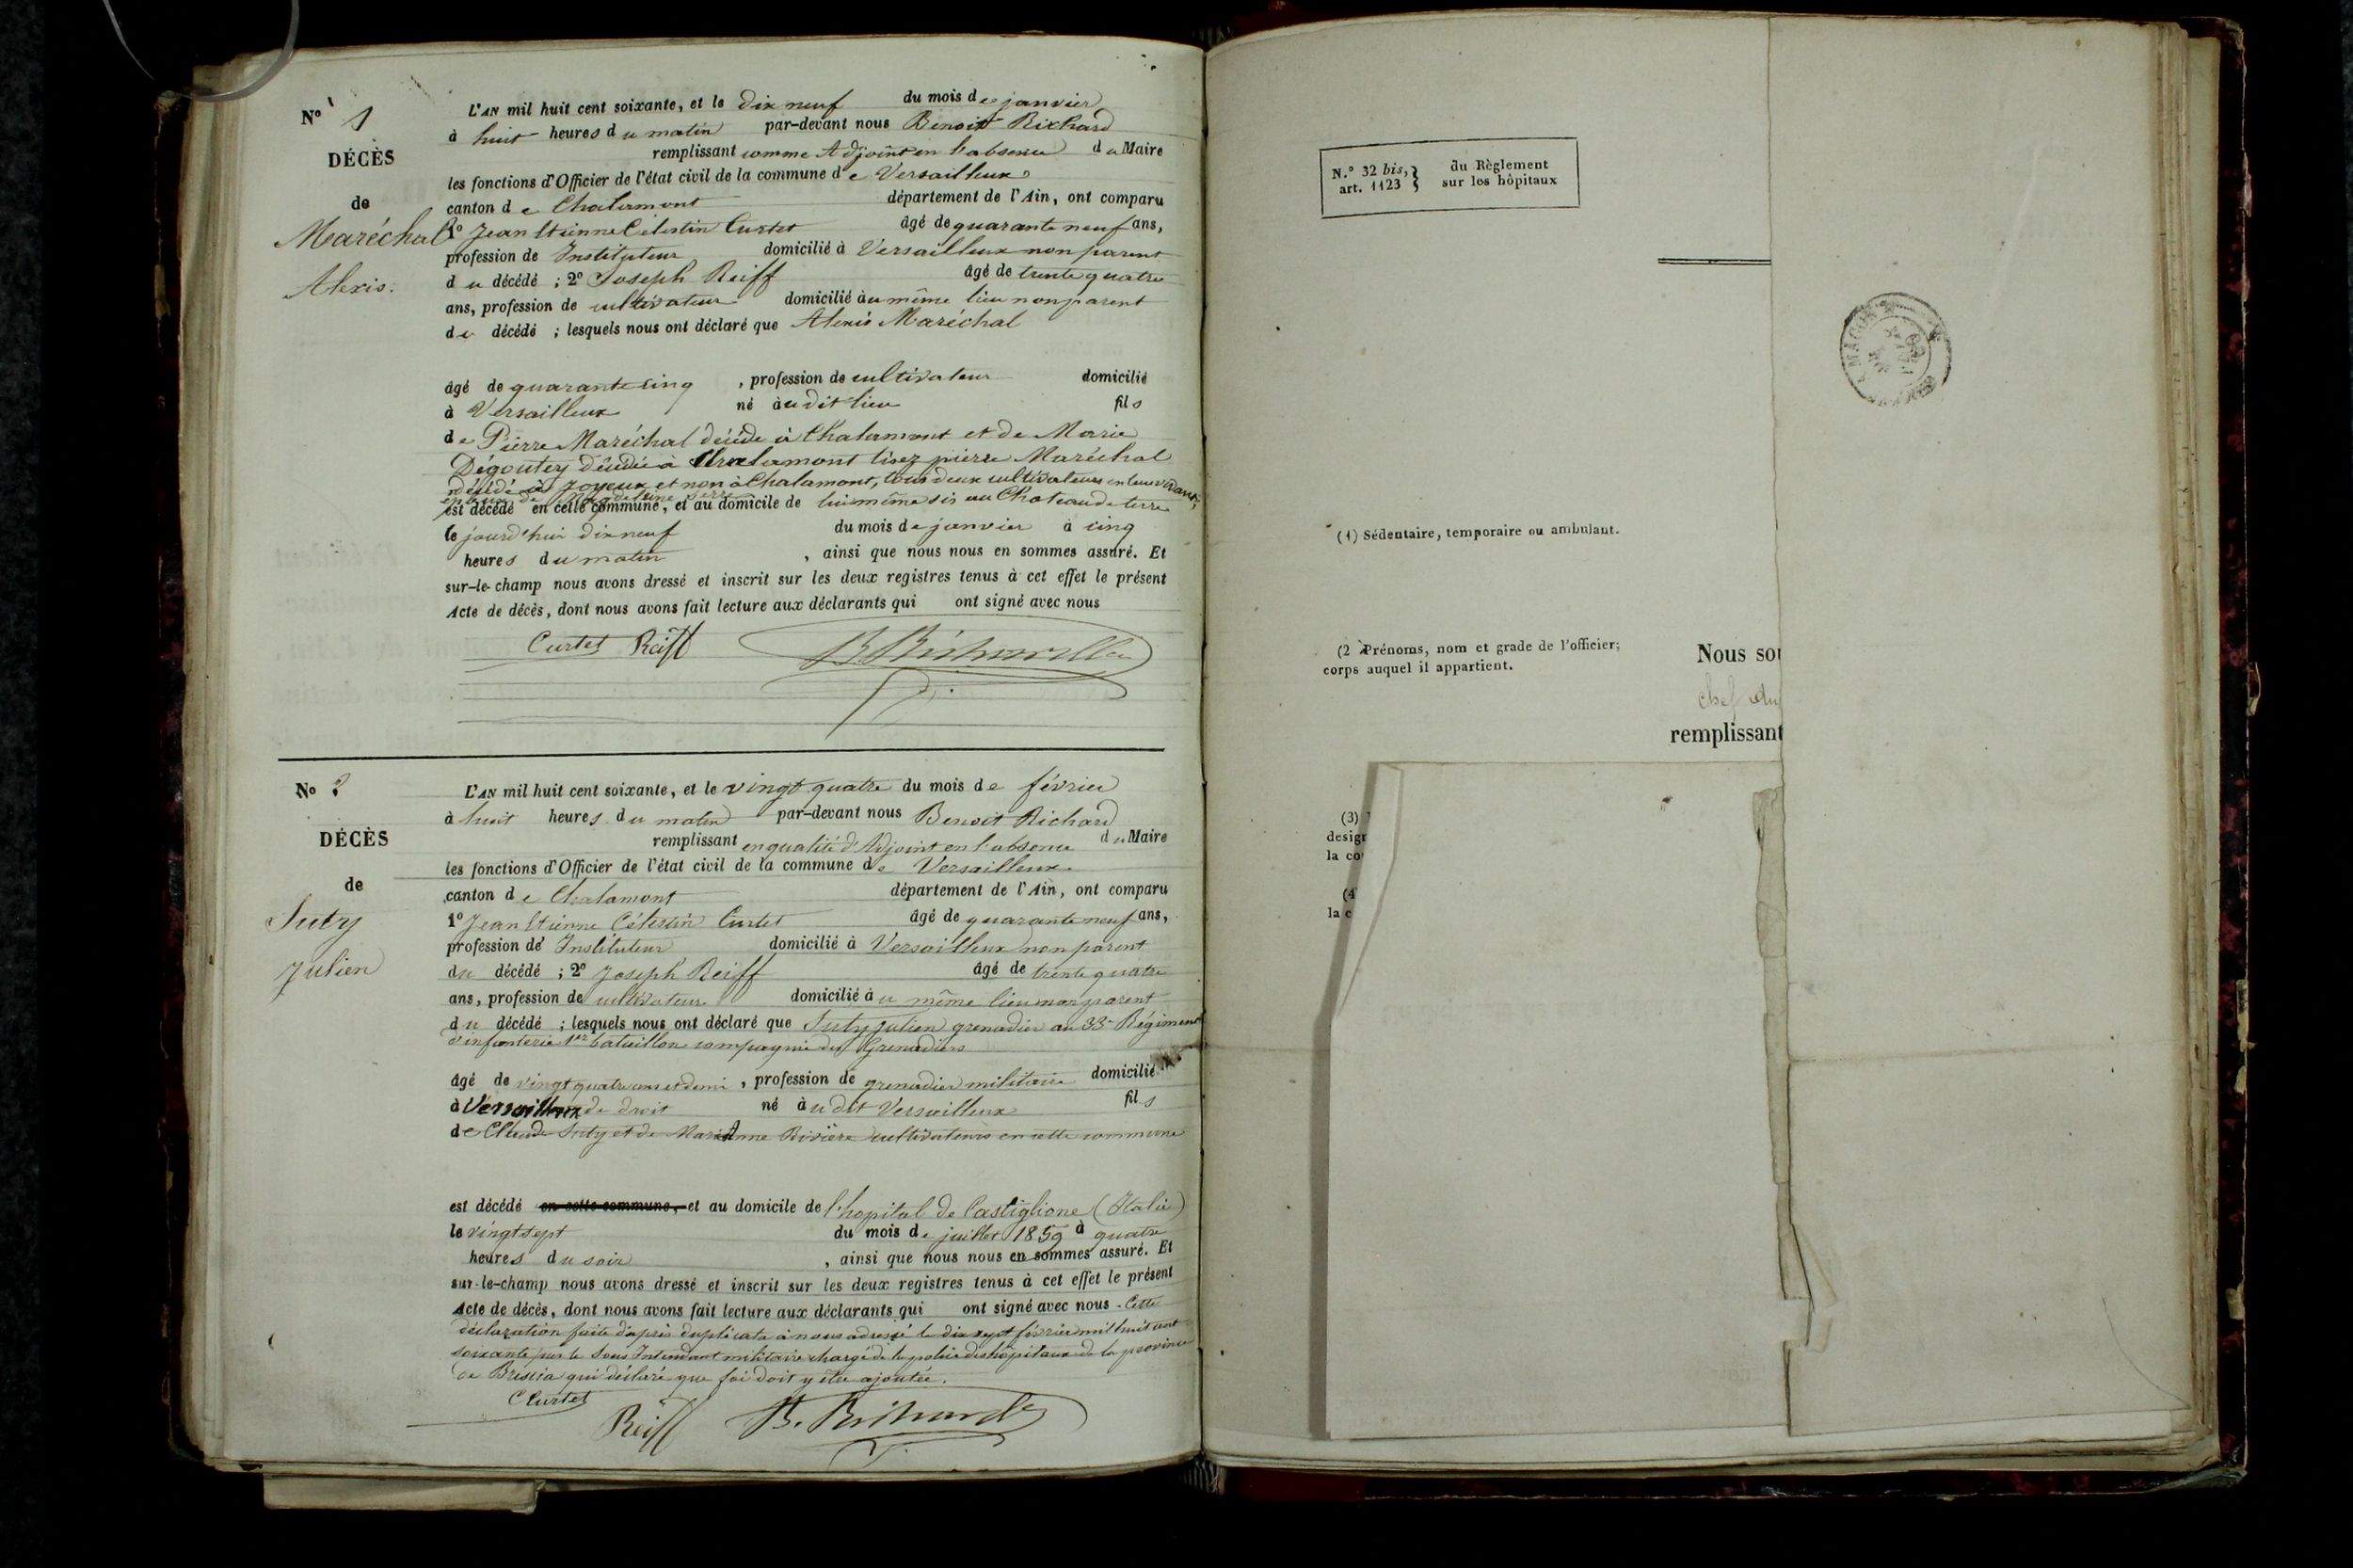 N° 1
DÉCÈS
de
Maréchal
Alexis.
L'AN mil huit cent soixante, et le dix neuf du mois de janvier
à huit heures du matin par-devant nous Benoit Richard
remplissant comme Adjoint en l'absence du Maire
les fonctions d'Officier de l'état civil de la commune de Versailleux
canton de Chalamont département de l'Ain, ont comparu
1° Jean Etienne Célestin Curtet âgé de quarante neuf ans,
profession de Instituteur domicilié à Versailleux non parent
du décédé ; 2° Joseph Reiff âgé de trente quatre
ans, profession de cultivateur domicilié au même lieu non parent
du décédé ; lesquels nous ont déclaré que Alexis Maréchal
âgé de quarante cinq , profession de cultivateur domicilié
à Versailleux né audit lieu fils
de Pierre Maréchal décédé à Chalamont et de Marie
Dégoutey décédée à Chalamont lisez pierre Maréchal
décédé à Joyeux et non à Chalamont, tous deux cultivateurs en leur vivant;
époux de Magdeleine
est décédé en cette commune, et au domicile de lui même sis au Chateau de terre
le jourd'hui dix neuf du mois de janvier à cinq
heures du matin , ainsi que nous nous en sommes assuré. Et
sur-le-champ nous avons dressé et inscrit sur les deux registres tenus à cet effet le présent
Acte de décès, dont nous avons fait lecture aux déclarants qui ont signé avec nous
Curtet Reiff B. Richard
N° 2
DÉCÈS
de
Suty
Julien
L'AN mil huit cent soixante, et le vingt quatre du mois de février
à huit heures du matin par-devant nous Benoit Richard
remplissant en qualité d'Adjoint en l'absence du Maire
les fonctions d'Officier de l'état civil de la commune de Versailleux
canton de Chalamont département de l'Ain, ont comparu
1° Jean Etienne Célestin Curtet âgé de quarante neuf ans,
profession de Instituteur domicilié à Versailleux non parent
du décédé ; 2° Joseph Reiff âgé de trente quatre
ans, profession de cultivateur domicilié au même lieu non parent
du décédé ; lesquels nous ont déclaré que Suty Julien grenadier au 33e Régiment
d'infanterie 1er bataillon compagnie des Grenadiers
âgé de vingt quatre ans et demi , profession de grenadier militaire domicilié
à Versailleux de droit né audit Versailleux fils
de Claude Suty et de Marie Anne Rivière cultivateurs en cette commune
est décédé en cette commune, et au domicile de l'hopital de Castiglione (Italie)
le vingt sept du mois de juillet 1859 à quatre
heures du soir , ainsi que nous nous en sommes assuré. Et
sur-le-champ nous avons dressé et inscrit sur les deux registres tenus à cet effet le présent
Acte de décès, dont nous avons fait lecture aux déclarants qui ont signé avec nous. Cette
déclaration faite d'après duplicata à nous adressé le dix sept février mil huit cent
soixante par le Sous Intendant militaire chargé de la police des hôpitaux de la province
de Brescia qui déclare que foi doit y être ajoutée.
Curtet
Reiff B. Richard
N.° 32 bis, art. 1123 } du Règlement sur les hôpitaux
MACON
(1) Sédentaire, temporaire ou ambulant.
(2 Prénoms, nom et grade de l'officier;
corps auquel il appartient.
Nous sou
chef du
remplissant
(3)
design
la co
(4
la c